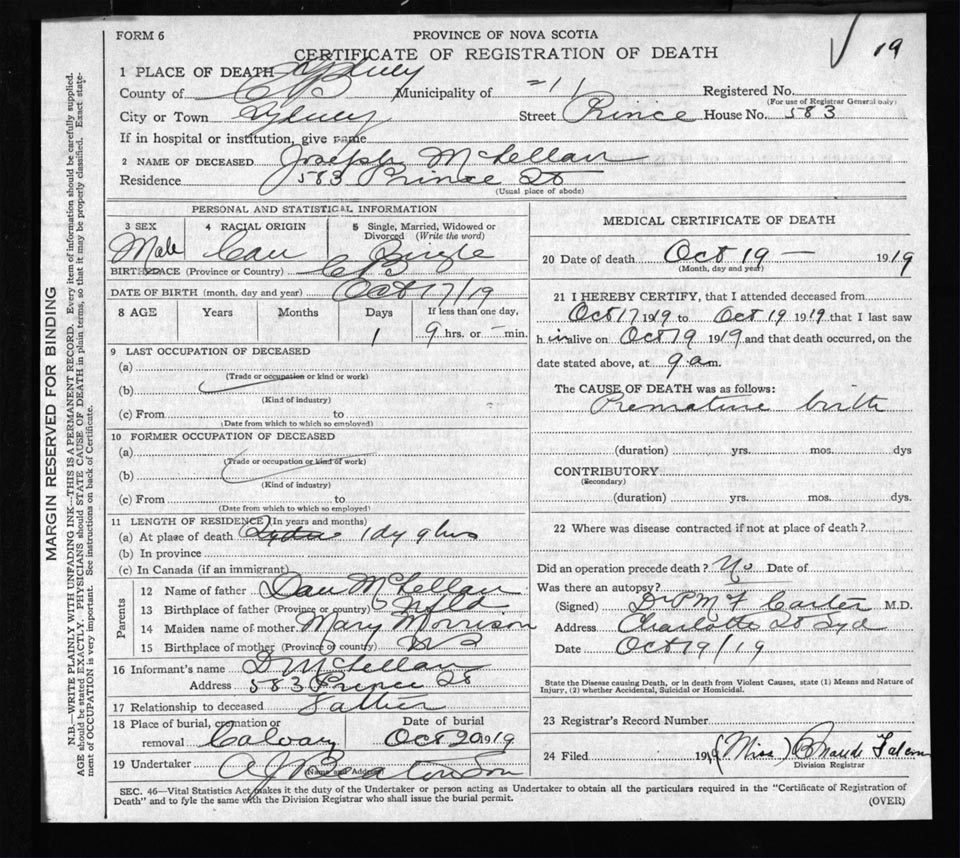 FORM 6
PROVINCE OF NOVA SCOTIA
19
CERTIFICATE OF REGISTRATION OF DEATH
1 PLACE OF DEATH Sydney
County of CB Municipality of "11 Registered No.
(For use of Registrar General only)
City or Town Sydney Street Prince House No. 583
If in hospital or institution, give name
2 NAME OF DECEASED Joseph McLellan
Residence 583 Prince St
(Usual place of abode)
PERSONAL AND STATISTICAL INFORMATION
3 SEX Male
4 RACIAL ORIGIN Can
5 Single, Married, Widowed or Divorced (Write the word) Single
BIRTHPLACE (Province or Country) CB
DATE OF BIRTH (month, day and year) Oct 17/19
8 AGE Years Months Days If less than one day,
1 9 hrs. or - min.
9 LAST OCCUPATION OF DECEASED
(a)
(Trade or occupation or kind of work)
(b)
(Kind of industry)
(c) From to
(Date from which to which so employed)
10 FORMER OCCUPATION OF DECEASED
(a)
(Trade or occupation or kind of work)
(b)
(Kind of industry)
(c) From to
(Date from which to which so employed)
11 LENGTH OF RESIDENCE (In years and months)
(a) At place of death 1 dy 9 hrs
(b) In province
(c) In Canada (if an immigrant)
Parents
12 Name of father Dan McLellan
13 Birthplace of father (Province or country) Nfld
14 Maiden name of mother Mary Morrison
15 Birthplace of mother (Province or country) NS
16 Informant's name D McLellan
Address 583 Prince St
17 Relationship to deceased Father
18 Place of burial, cremation or removal Calvary
Date of burial Oct 20 1919
19 Undertaker A J Beaton Son
(Name and Address)
MEDICAL CERTIFICATE OF DEATH
20 Date of death Oct 19 - 1919
(Month, day and year)
21 I HEREBY CERTIFY, that I attended deceased from
Oct 17 1919 to Oct 19 1919 that I last saw
him alive on Oct 19 1919 and that death occurred, on the
date stated above, at 9 a.m.
The CAUSE OF DEATH was as follows:
Premature birth
(duration) yrs. mos. dys
CONTRIBUTORY
(Secondary)
(duration) yrs. mos. dys.
22 Where was disease contracted if not at place of death?
Did an operation precede death? No Date of
Was there an autopsy?
(Signed) Dr P M F Carter M.D.
Address Charlotte St Syd
Date Oct 19/19
State the Disease causing Death, or in death from Violent Causes, state (1) Means and Nature of
Injury, (2) whether Accidental, Suicidal or Homicidal.
23 Registrar's Record Number
24 Filed 191 (Miss) Maude
Division Registrar
SEC. 46—Vital Statistics Act makes it the duty of the Undertaker or person acting as Undertaker to obtain all the particulars required in the "Certificate of Registration of
Death" and to fyle the same with the Division Registrar who shall issue the burial permit.
(OVER)
MARGIN RESERVED FOR BINDING
N.B.—WRITE PLAINLY WITH UNFADING INK—THIS IS A PERMANENT RECORD. Every item of information should be carefully supplied.
AGE should be stated EXACTLY. PHYSICIANS should STATE CAUSE OF DEATH in plain terms, so that it may be properly classified. Exact state-
ment of OCCUPATION is very important. See instructions on back of Certificate.